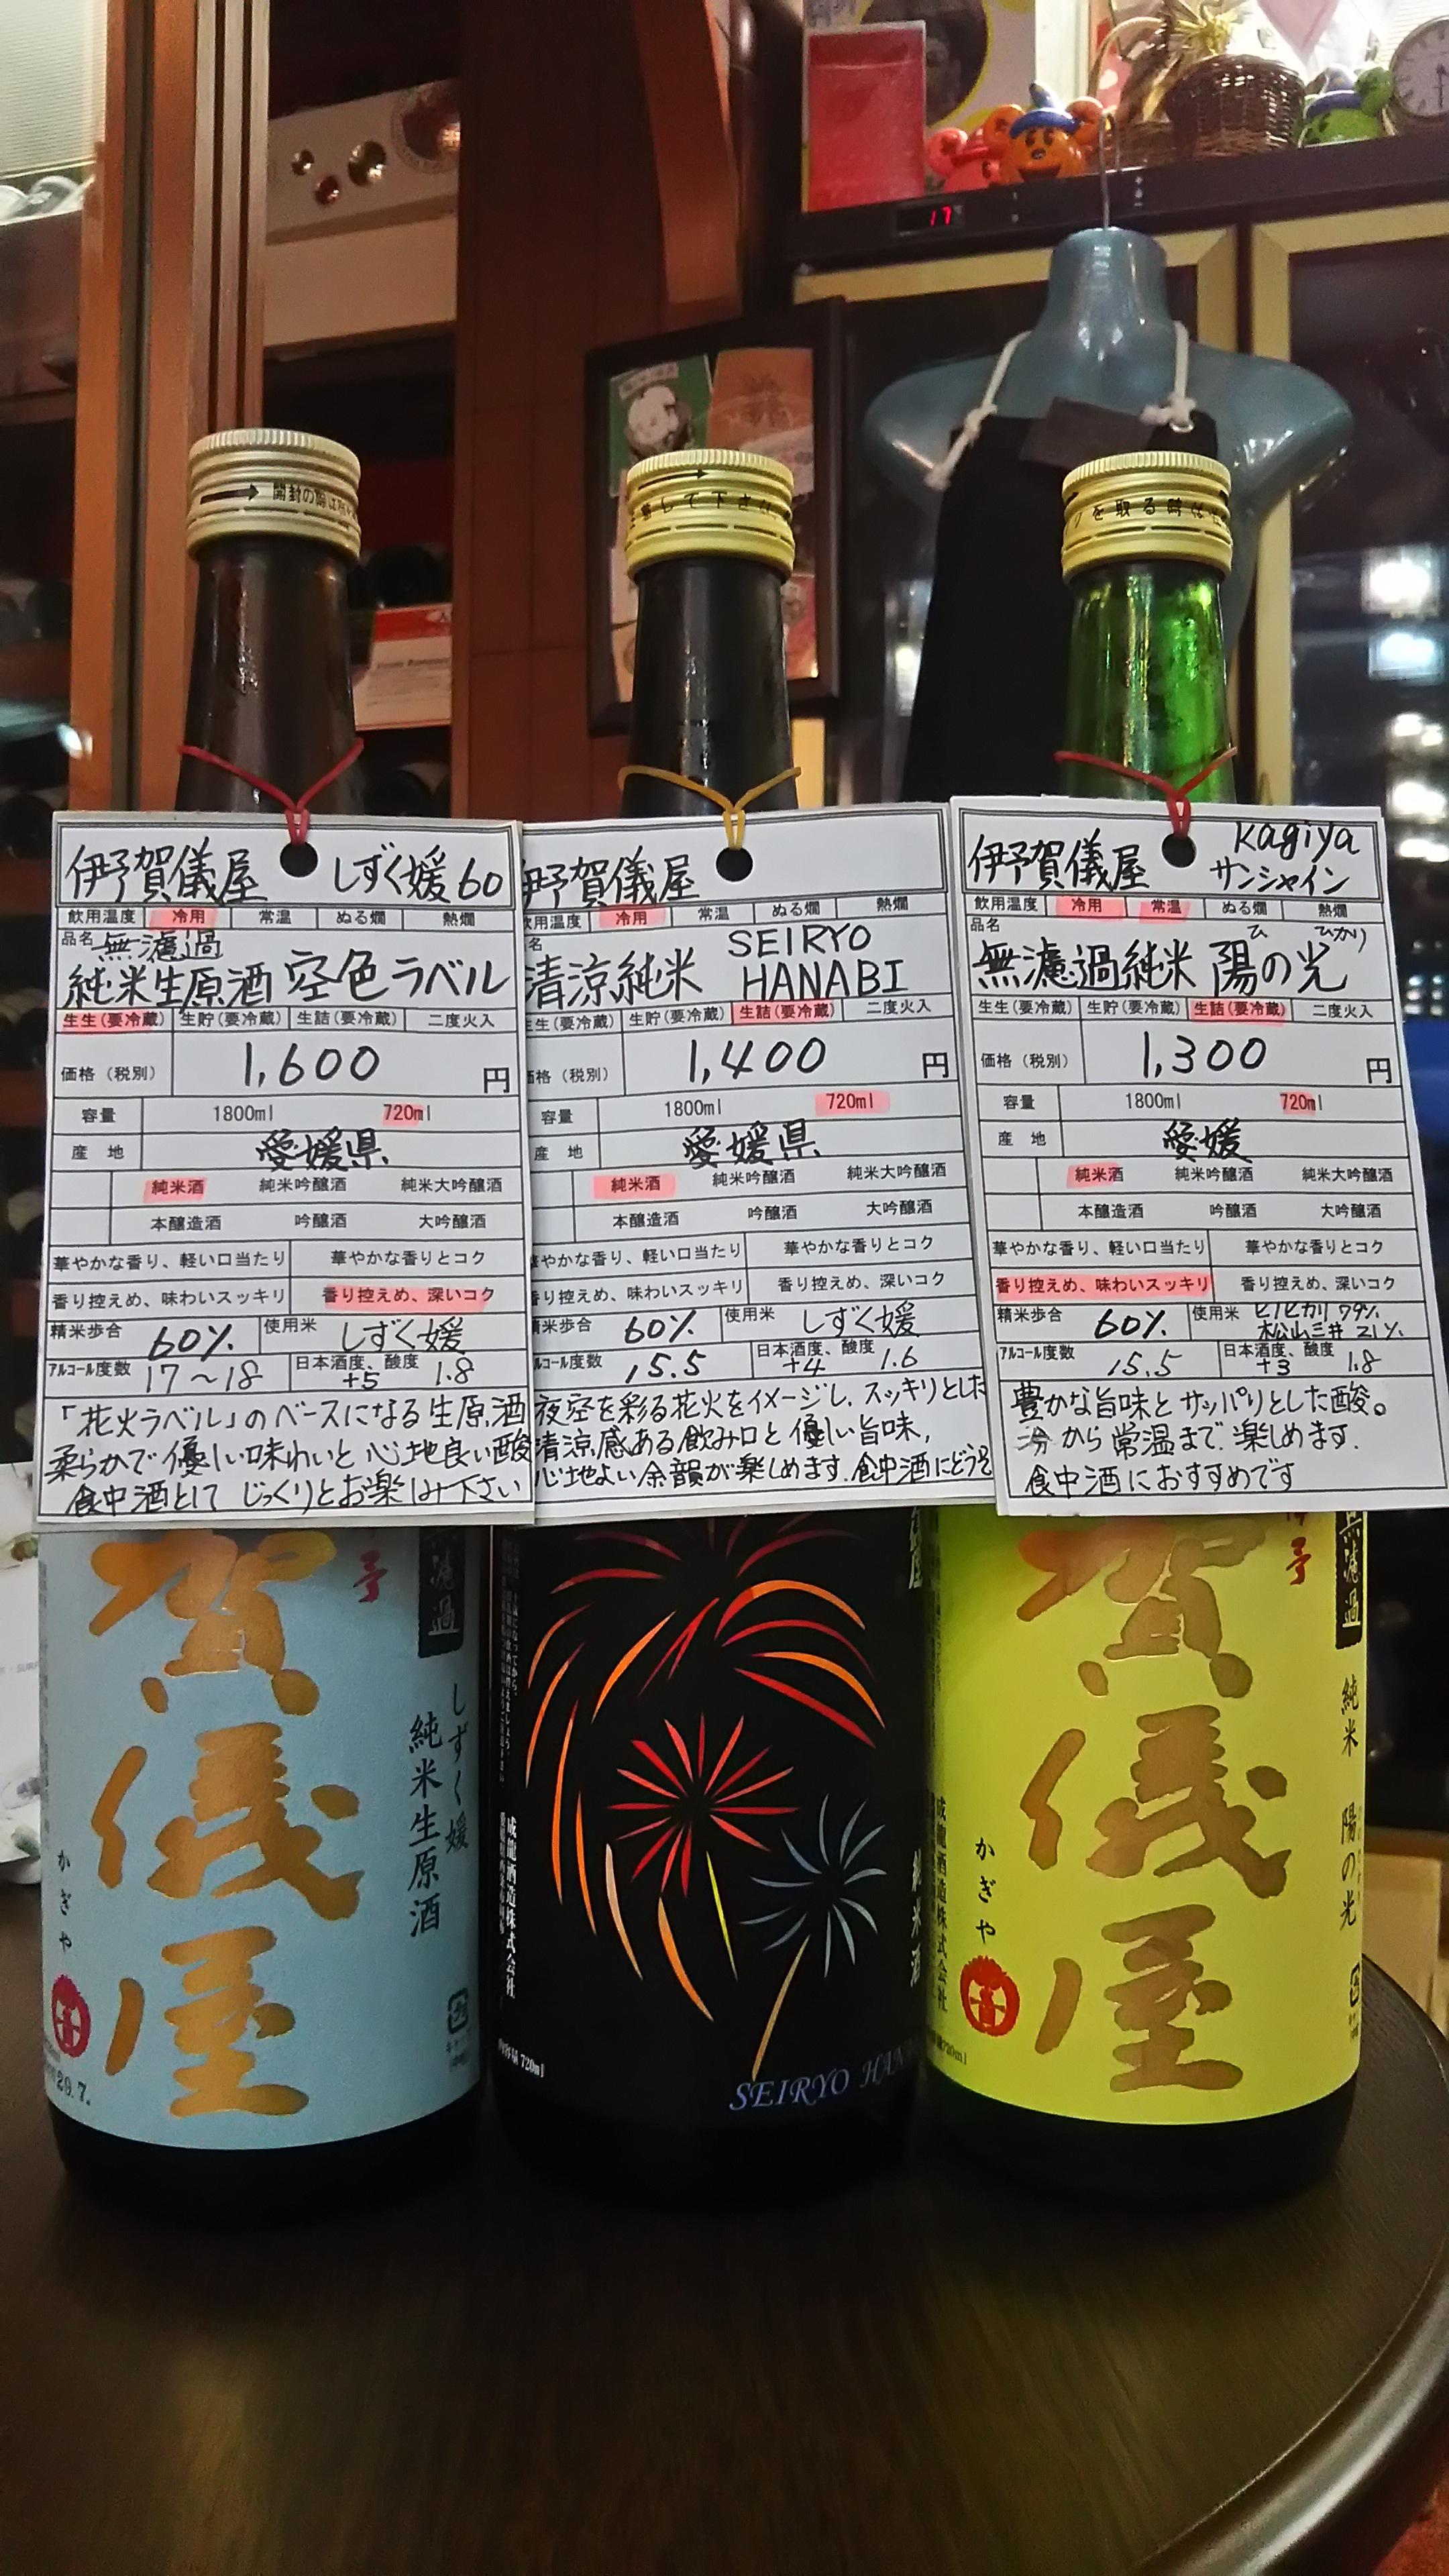 17
開封の際は
注意して下さい
を取る時は
伊予賀儀屋 しずく媛60
飲用温度 冷用 常温 ぬる燗 熱燗
品名 無濾過
純米生原酒 空色ラベル
生生(要冷蔵) 生貯(要冷蔵) 生詰(要冷蔵) 二度火入
価格(税別) 1,600 円
容量 1800ml 720ml
産地 愛媛県
純米酒 純米吟醸酒 純米大吟醸酒
本醸造酒 吟醸酒 大吟醸酒
華やかな香り、軽い口当たり 華やかな香りとコク
香り控えめ、味わいスッキリ 香り控えめ、深いコク
精米歩合 60% 使用米 しずく媛
アルコール度数 17〜18 日本酒度、酸度 +5 1.8
「花火ラベル」のベースになる生原酒
柔らかで優しい味わいと心地良い酸
食中酒として じっくりとお楽しみ下さい
伊予賀儀屋
飲用温度 冷用 常温 ぬる燗 熱燗
名 SEIRYO
清涼純米 HANABI
生生(要冷蔵) 生貯(要冷蔵) 生詰(要冷蔵) 二度火入
価格(税別) 1,400 円
容量 1800ml 720ml
産地 愛媛県
純米酒 純米吟醸酒 純米大吟醸酒
本醸造酒 吟醸酒 大吟醸酒
華やかな香り、軽い口当たり 華やかな香りとコク
香り控えめ、味わいスッキリ 香り控えめ、深いコク
精米歩合 60% 使用米 しずく媛
アルコール度数 15.5 日本酒度、酸度 +4 1.6
夜空を彩る花火をイメージし、スッキリとした
清涼感ある飲み口と優しい旨味,
心地よい余韻が楽しめます.食中酒にどうぞ
伊予賀儀屋 Kagiya
サンシャイン
飲用温度 冷用 常温 ぬる燗 熱燗
品名 ひ ひかり
無濾過純米 陽の光
生生(要冷蔵) 生貯(要冷蔵) 生詰(要冷蔵) 二度火入
価格(税別) 1,300 円
容量 1800ml 720ml
産地 愛媛
純米酒 純米吟醸酒 純米大吟醸酒
本醸造酒 吟醸酒 大吟醸酒
華やかな香り、軽い口当たり 華やかな香りとコク
香り控えめ、味わいスッキリ 香り控えめ、深いコク
精米歩合 60% 使用米 ヒノヒカリ79%
松山三井 21%
アルコール度数 15.5 日本酒度、酸度 +3 1.8
豊かな旨味とサッパリとした酸。
冷から常温まで楽しめます.
食中酒におすすめです
無濾過
しずく媛
純米生原酒
予
賀儀屋
かぎや
29.7.
純米酒
成龍酒造株式会社
720ml
SEIRYO HAN
無濾過
純米 陽の光
予
賀儀屋
かぎや
成龍酒造株式会社
720ml